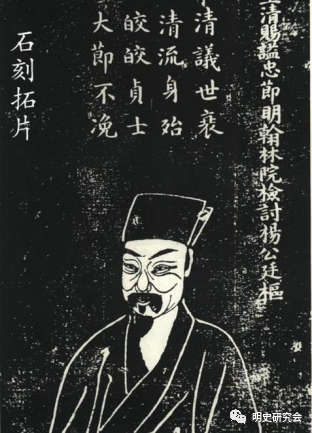 清賜謚忠節明翰林院檢討楊公廷樞
清議世衰
清流身殆
皎皎貞士
大節不浼
石刻拓片
明史研究会